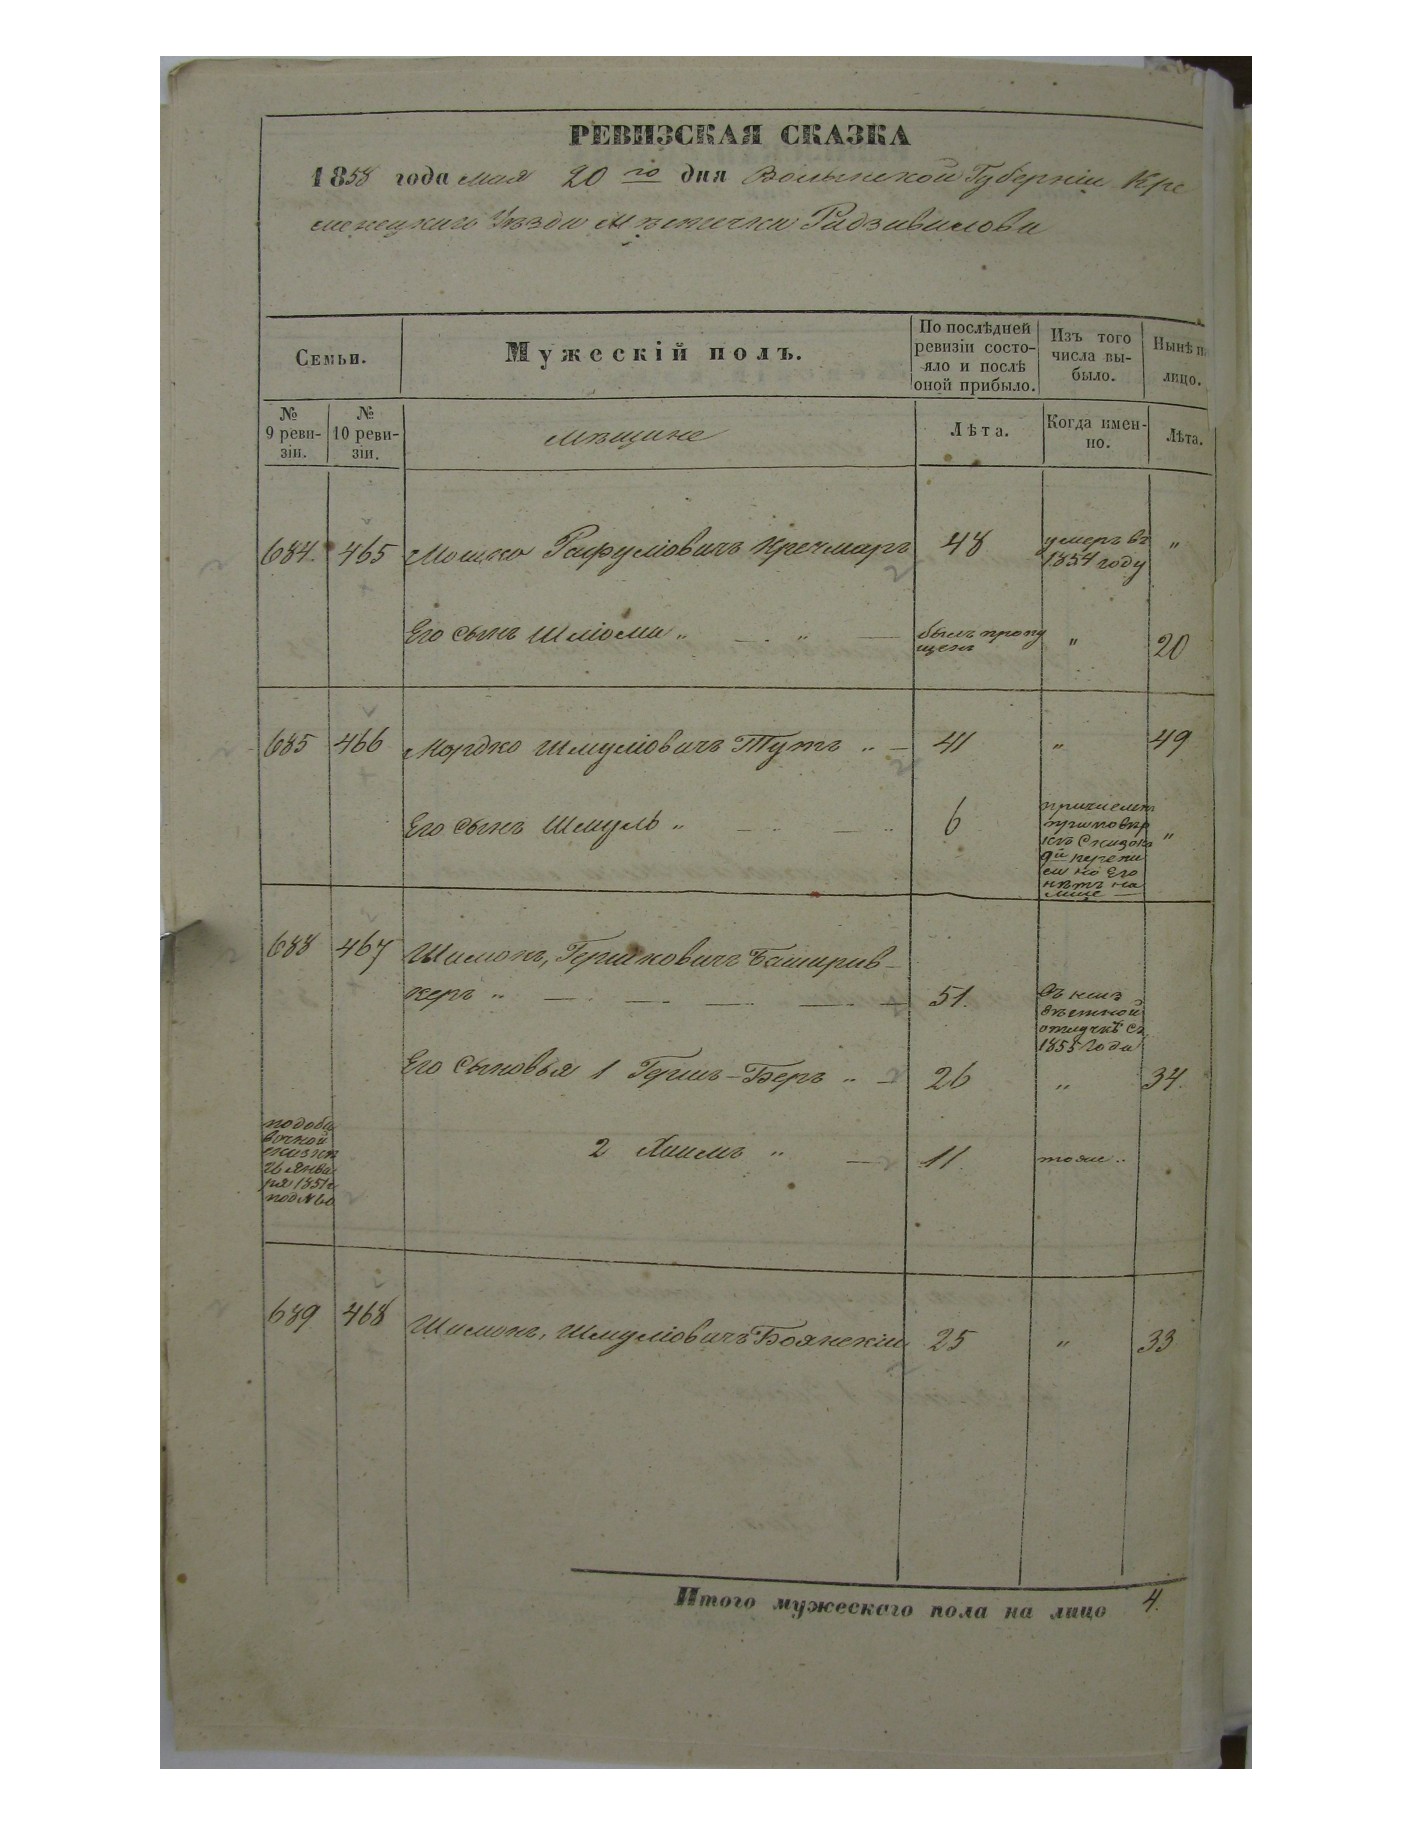 РЕВИЗСКАЯ СКАЗКА
1858 года мая 20 го дня Волынской Губерніи Кре
менецкаго Уѣзда Мѣстечка Радзивилова
Семьи.
Мужескій полъ.
По послѣдней
ревизіи состо-
яло и послѣ
оной прибыло.
Изъ того
числа вы-
было.
Нынѣ н
лицо.
№
9 реви-
зіи.
№
10 реви-
зіи.
мѣщане
Лѣта.
Когда имен-
но.
Лѣта.
684 465 Мошко Рафуліовичъ Кречмаръ 48 умеръ въ "
1854 году
Его сынъ Шліома " — " — былъ пропу " 20
щенъ
685 466 Мордко Шмуліовичъ Тутъ " — 41 " 49
Его сынъ Шмуль " — — " 6 "
9й перепи
си но Его
нѣтъ на
лице —
688 467 Шимонъ, Гершковичъ Башарив-
керъ " — — — — — 51. Въ неиз
вѣстной
отлучкѣ съ
1855 года
Его Сыновья 1 Гершъ-Беръ " — 26 " 34.
2 Хаимъ " — 11. тоже "
подоба
вочной
сказки
января
1851
под № 60
689 468 Шимонъ, Шмуліовичъ Боянскій 25 " 33
Итого мужескаго пола на лицо 4.